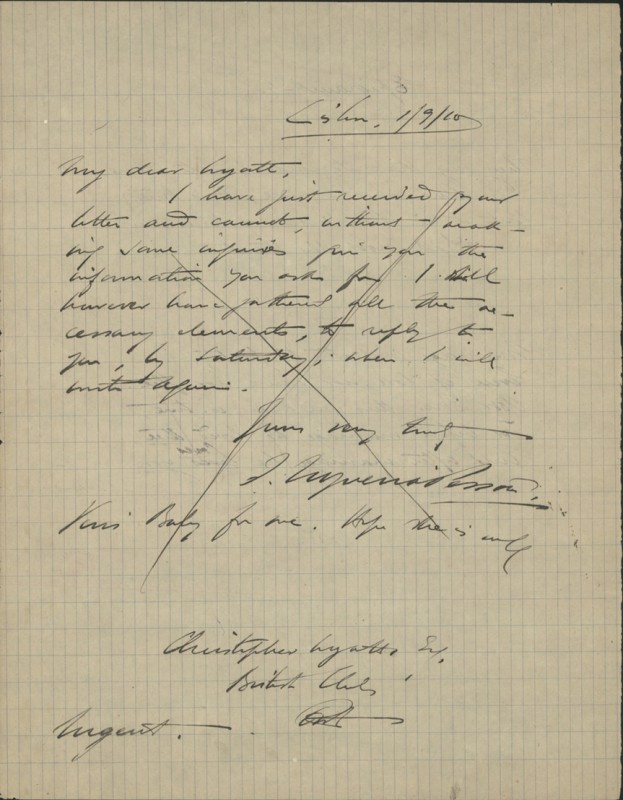 Lisbon, 1/9/10
My dear Wyatt,
I have just received your
letter and cannot, without mak-
ing some inquiries give you the
information you ask for. I will
however have gathered all the ne-
cessary elements, to reply to
you, by Saturday, when I will
write again.
Yours very truly
Pessoa.
Kiss Baby for me. Hope she is well
Christopher Wyatt, Esq.
British Club
Urgent.